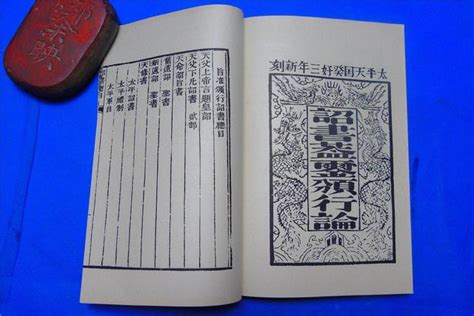 太平天囯癸好三年新刻
詔書蓋璽頒行論
旨准頒行詔書總目
天父上帝言題皇詔
天父下凡詔書 貳部
天命詔旨書
舊遺詔 聖書
新遺詔 聖書
天條書
太平詔書
太平禮制
太平軍目